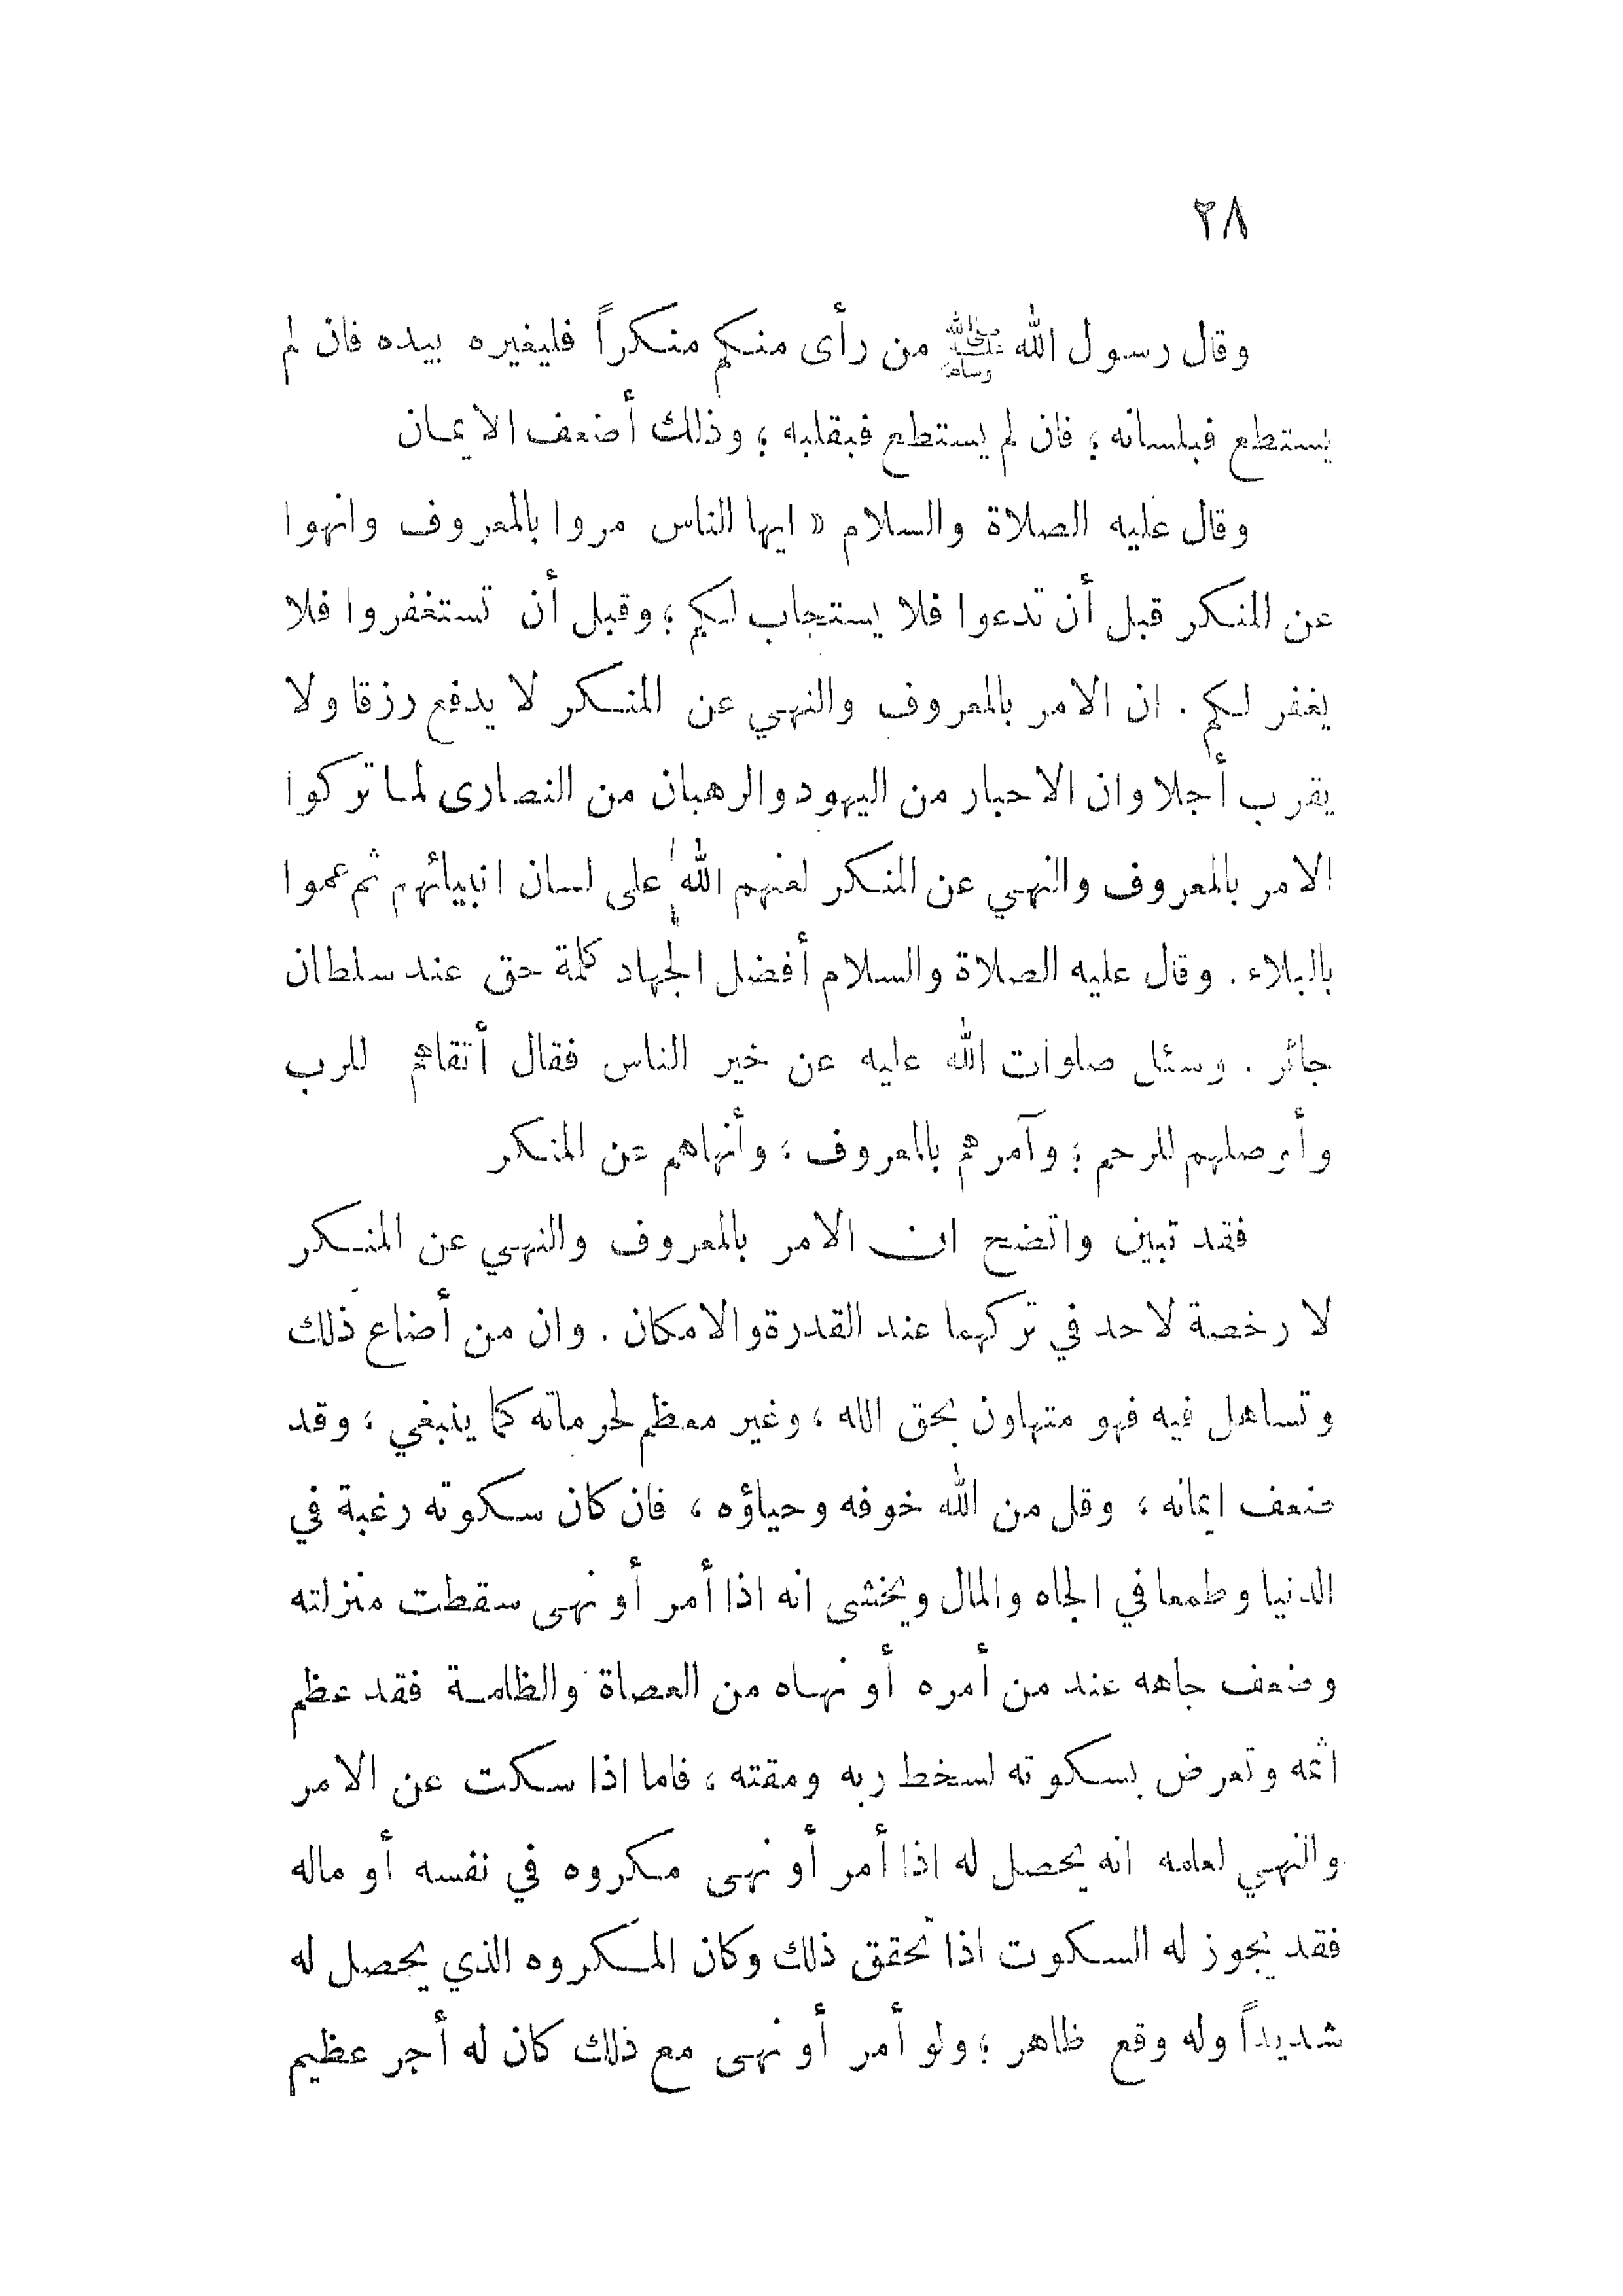 ٢٨
وقال رسول الله ﷺ من رأى منكم منكراً فليغيره بيده فان لم
يستطع فبلسانه ؛ فان لم يستطع فبقلبه ؛ وذلك أضعف الايمان
وقال عليه الصلاة والسلام « ايها الناس مروا بالمعروف وانهوا
عن المنكر قبل أن تدعوا فلا يستجاب لكم ؛ وقبل أن تستغفروا فلا
يغفر لكم . ان الامر بالمعروف والنهي عن المنكر لا يدفع رزقا ولا
يقرب أجلا وان الاحبار من اليهود والرهبان من النصارى لما تركوا
الامر بالمعروف والنهي عن المنكر لعنهم الله على لسان انبيائهم ثم عموا
بالبلاء . وقال عليه الصلاة والسلام أفضل الجهاد كلمة حق عند سلطان
جائر . وسئل صلوات الله عليه عن خير الناس فقال أتقاهم للرب
وأوصلهم للرحم ؛ وآمرهم بالمعروف ؛ وأنهاهم عن المنكر
فقد تبين واتضح ان الامر بالمعروف والنهي عن المنكر
لا رخصة لاحد في تركهما عند القدرة والامكان . وان من أضاع ذلك
وتساهل فيه فهو متهاون بحق الله ، وغير معظم لحرماته كما ينبغي ، وقد
ضعف ايمانه ، وقل من الله خوفه وحياؤه ، فان كان سكوته رغبة في
الدنيا وطمعا في الجاه والمال ويخشى انه اذا أمر أو نهى سقطت منزلته
وضعف جاهه عند من أمره أو نهاه من العصاة والظلمة فقد عظم
اثمه وتعرض بسكوته لسخط ربه ومقته ، فاما اذا سكت عن الامر
والنهي لعلمه انه يحصل له اذا أمر أو نهى مكروه في نفسه أو ماله
فقد يجوز له السكوت اذا تحقق ذلك وكان المكروه الذي يحصل له
شديداً وله وقع ظاهر ؛ ولو أمر أو نهى مع ذلك كان له أجر عظيم